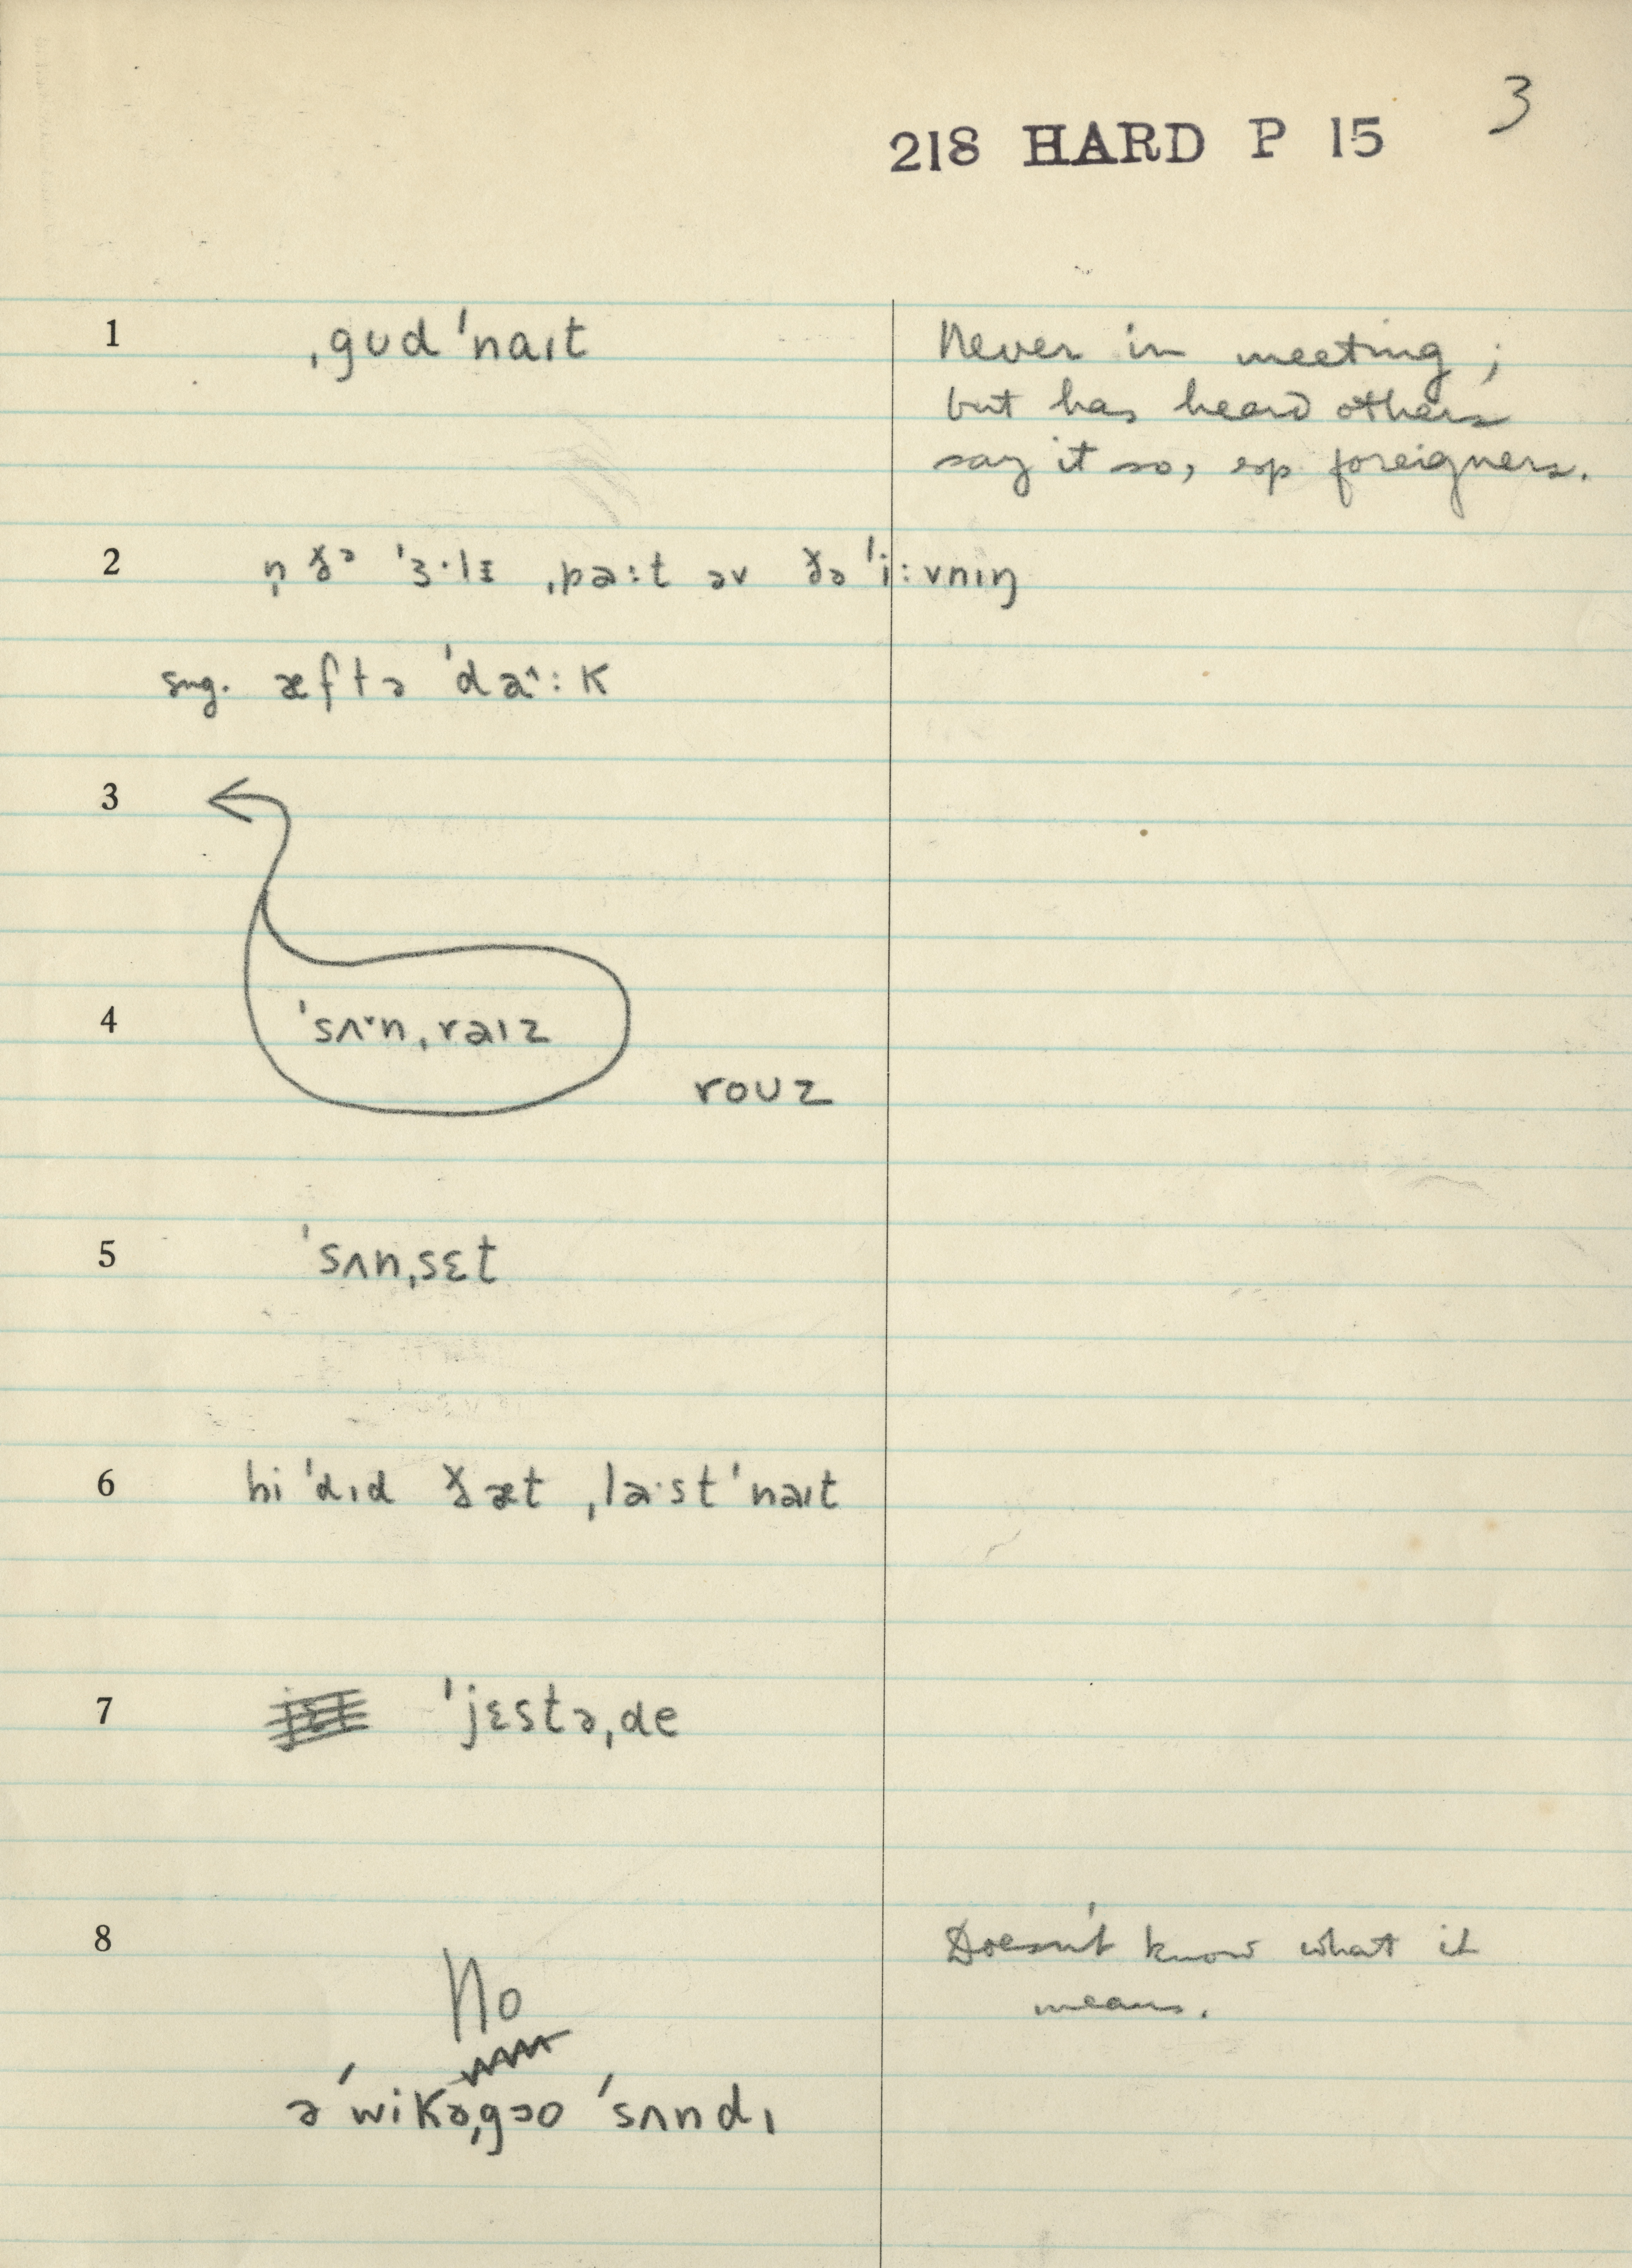 3
218 HARD P 15
1 ˌgʊd ˈnaɪt
Never in meeting;
but has heard others
say it so, esp foreigners.
2 n̩ ðə ˈɜ·lɪ ˌpa:t əv ðə ˈi:vnɪŋ
sug. æftə ˈda^:k
3
4 ˈsʌ˅nˌraɪz
roʊz
5 ˈsʌnˌsɛt
6 hi ˈdɪd ðæt ˌla·st ˈnaɪt
7 ˈjɛstəˌde
8 No
Doesn't know what it
means.
ə ˈwikəˌgɔo ˈsʌndɪ